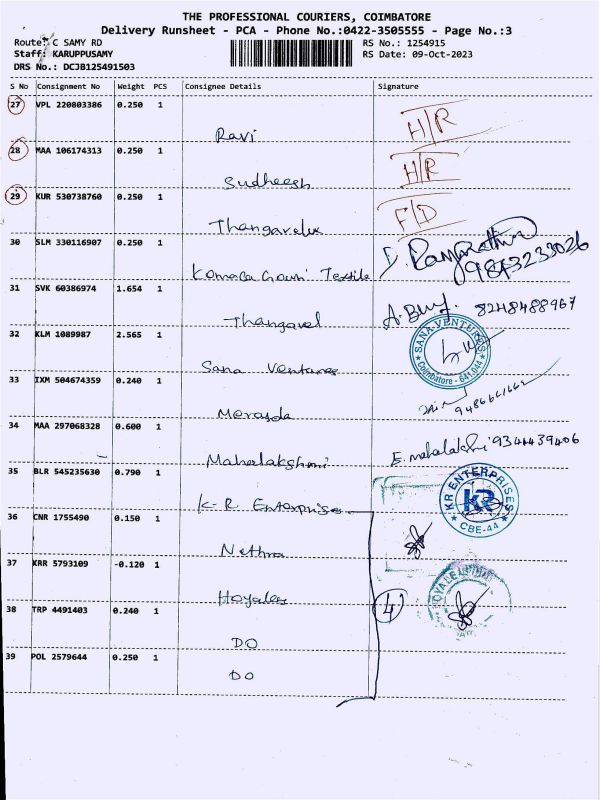 THE PROFESSIONAL COURIERS, COIMBATORE
Delivery Runsheet - PCA - Phone No.:0422-3505555 - Page No.:3
Route: C SAMY RD RS No.: 1254915
Staff: KARUPPUSAMY RS Date: 09-Oct-2023
DRS No.: DCJB125491503
S No Consignment No Weight PCS Consignee Details Signature
27 VPL 220803386 0.250 1
Ravi H/R
28 MAA 106174313 0.250 1
Sudheesh H/R
29 KUR 530738760 0.250 1
Thangavelu F/D
30 SLM 330116907 0.250 1
Textile 9843233026
31 SVK 60386974 1.654 1
Thangavel 8248488967
32 KLM 1089987 2.565 1
Sana Ventures SANA VENTURES Coimbatore - 641 044
33 IXM 504674359 0.240 1
34 MAA 297068328 0.600 1
Mahalakshmi E. mahalakshmi 9344439406
35 BLR 545235630 0.790 1
K-R Enterprises KR ENTERPRISES KR CBE-44
36 CNR 1755490 0.150 1
Nethra
37 KRR 5793109 -0.120 1
Hoyalees 4
38 TRP 4491403 0.240 1
DO
39 POL 2579644 0.250 1
DO